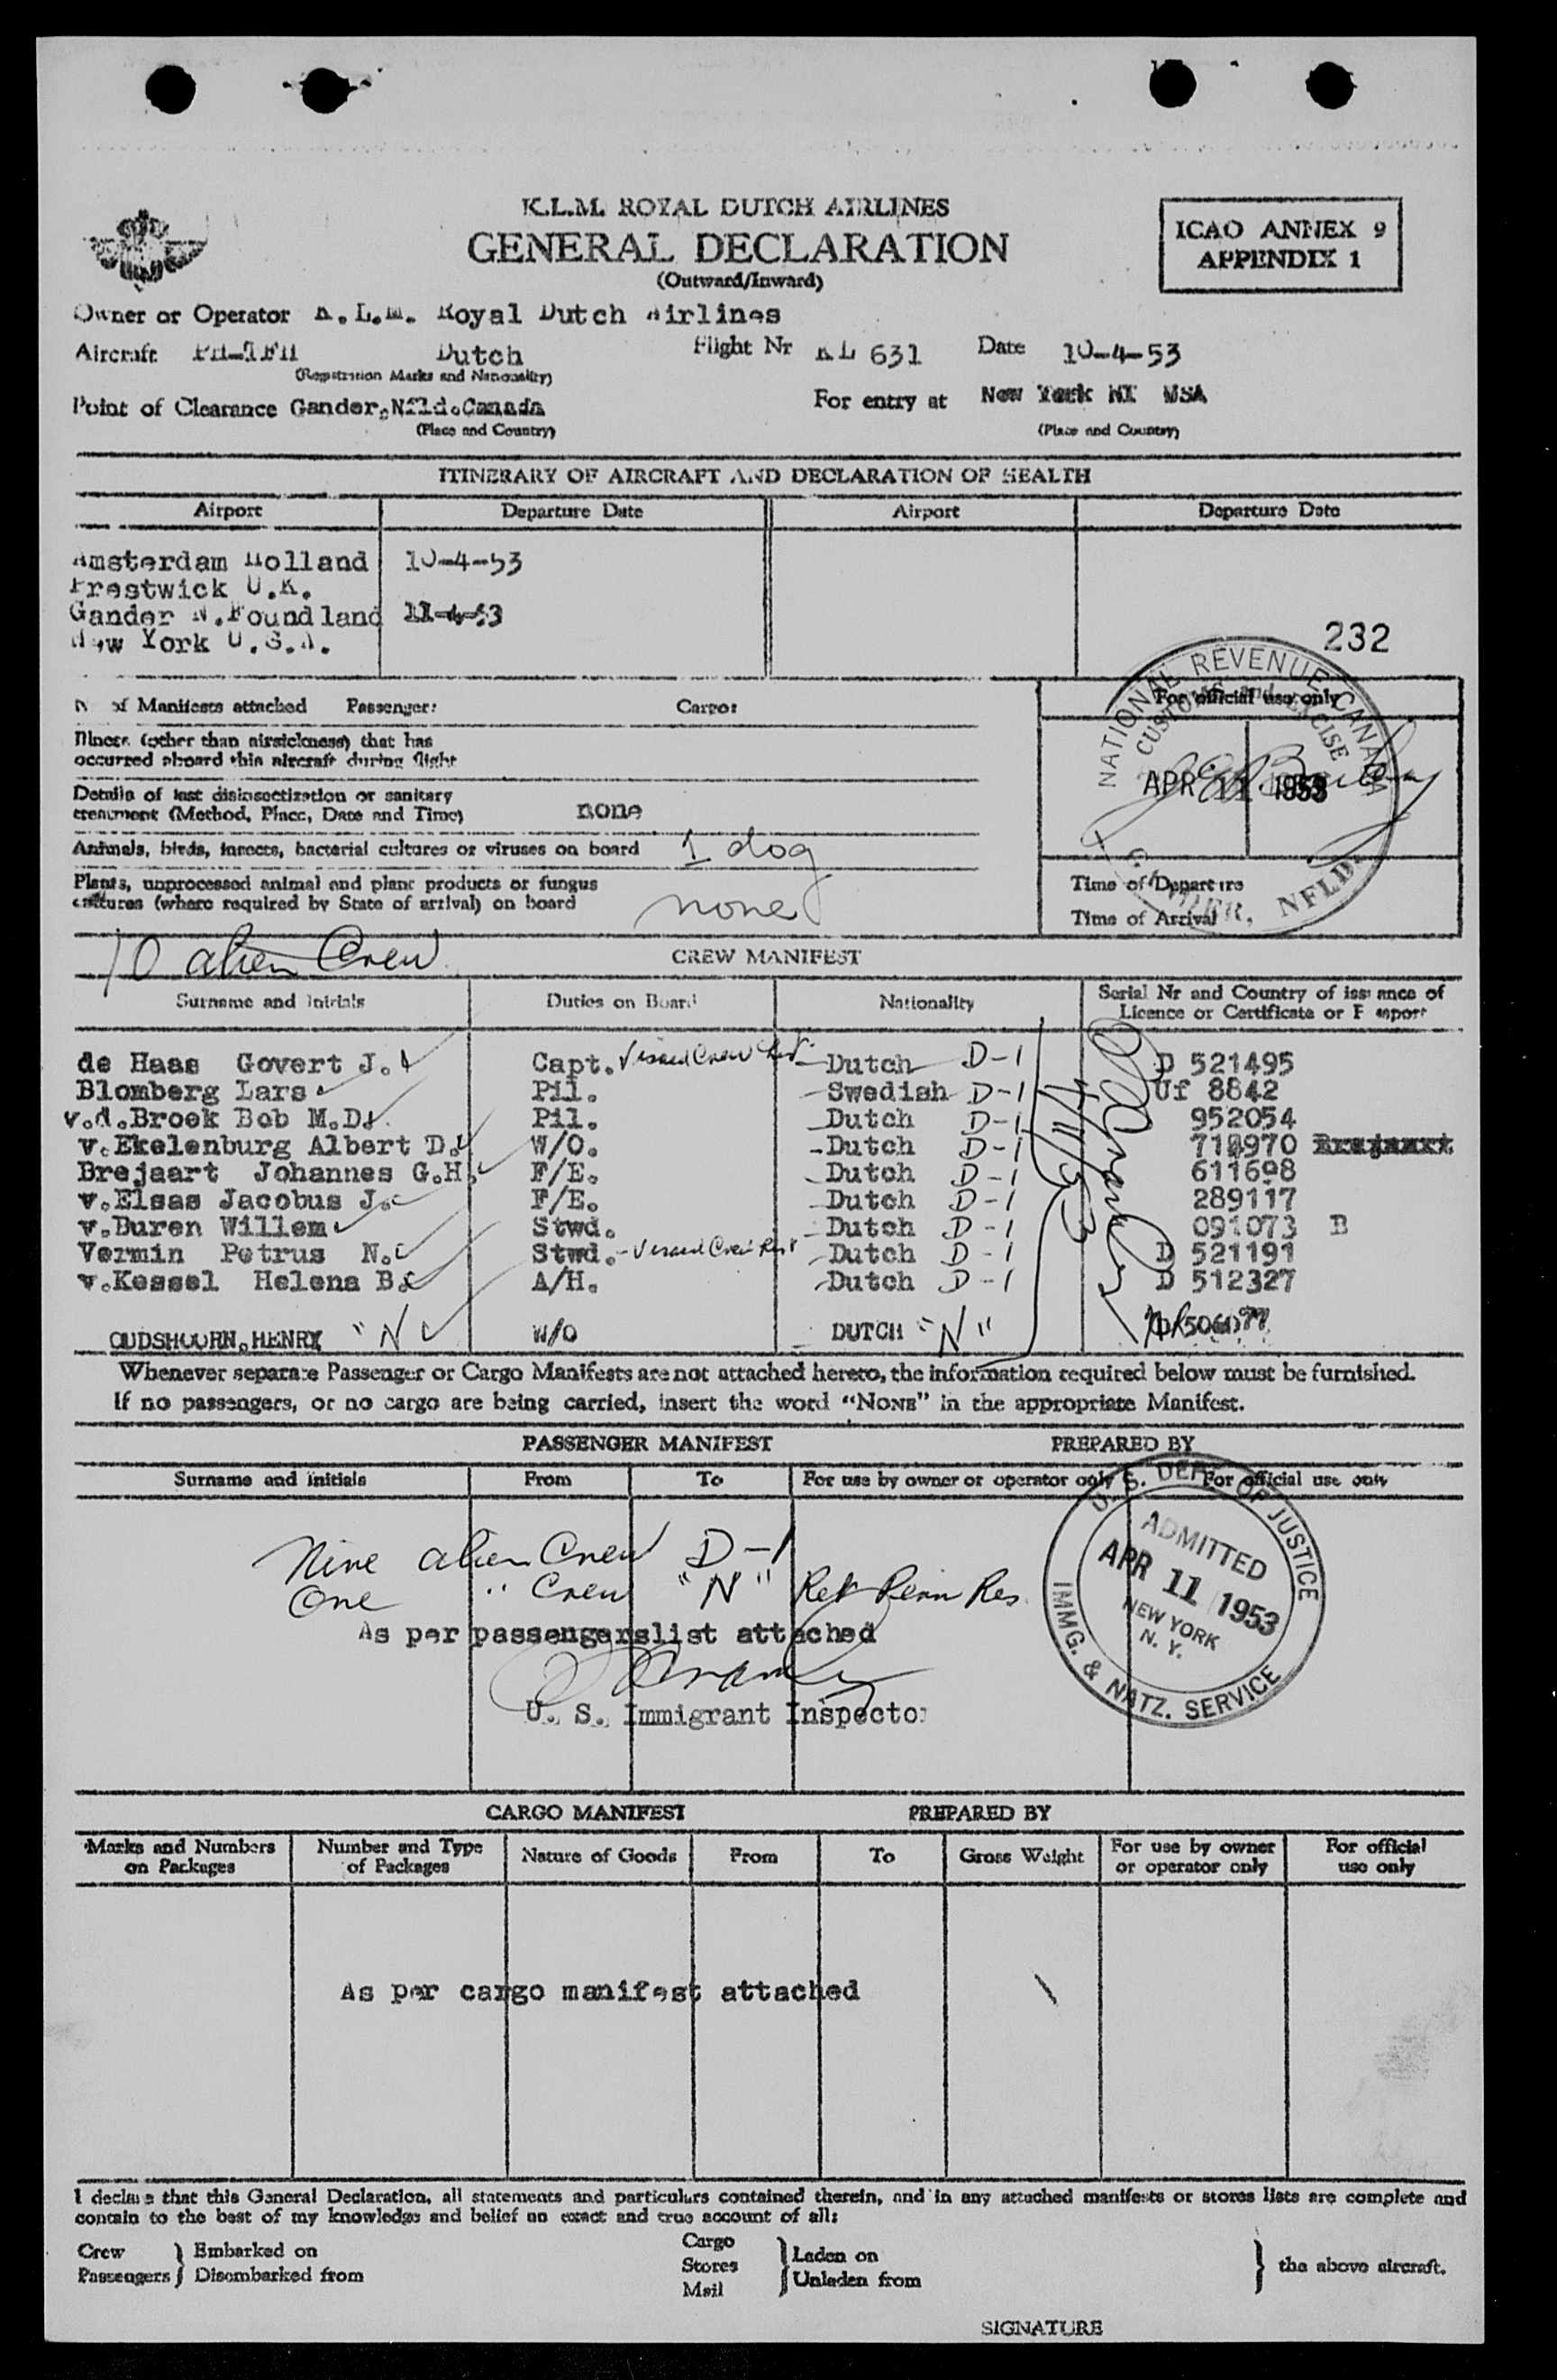 K.L.M. ROYAL DUTCH AIRLINES
GENERAL DECLARATION
(Outward/Inward)
ICAO ANNEX 9
APPENDIX 1
Owner or Operator K.L.M. Royal Dutch Airlines
Aircraft PH-TFH Dutch Flight Nr KL 631 Date 10-4-53
(Registration Marks and Nationality)
Point of Clearance Gander, Nfld. Canada For entry at New York NY USA
(Place and Country) (Place and Country)
ITINERARY OF AIRCRAFT AND DECLARATION OF HEALTH
Airport Departure Date Airport Departure Date
Amsterdam Holland 10-4-53
Prestwick U.K.
Gander N.Foundland 11-4-53
New York U.S.A.
232
of Manifests attached Passenger: Cargo:
For official use only
NATIONAL REVENUE CANADA
CUSTOMS and EXCISE
APR 11 1953
NFLD.
Illness (other than airsickness) that has
occurred aboard this aircraft during flight
Details of last disinsectization or sanitary
treatment (Method, Place, Date and Time) none
Animals, birds, insects, bacterial cultures or viruses on board 1 dog
Plants, unprocessed animal and plant products or fungus
cultures (where required by State of arrival) on board none
Time of Departure
Time of Arrival
10 alien Crew
CREW MANIFEST
Surname and Initials Duties on Board Nationality Serial Nr and Country of issuance of
Licence or Certificate or Passport
de Haas Govert J. Capt. Visaed Crew List Dutch D-1 D 521495
Blomberg Lars Pil. Swedish D-1 Uf 8842
v.d.Broek Bob M.D. Pil. Dutch D-1 952054
v.Ekelenburg Albert D. W/O. Dutch D-1 718970
Brejaart Johannes G.H. F/E. Dutch D-1 611698
v.Elsas Jacobus J. F/E. Dutch D-1 289117
v.Buren Willem Stwd. Dutch D-1 091073 B
Vermin Petrus N. Stwd. - Visaed Crew List Dutch D-1 D 521191
v.Kessel Helena B. A/H. Dutch D-1 D 512327
4/11/53
OUDSHOORN, HENRY "N" W/O DUTCH "N"
Whenever separate Passenger or Cargo Manifests are not attached hereto, the information required below must be furnished.
If no passengers, or no cargo are being carried, insert the word “NONE” in the appropriate Manifest.
PASSENGER MANIFEST PREPARED BY
Surname and initials From To For use by owner or operator only For official use only
Nine alien Crew D-1
One " Crew "N" Ret Perm Res.
As per passengerslist attached
U. S. Immigrant Inspector
U. S. DEPT OF JUSTICE
ADMITTED
APR 11 1953
NEW YORK
N. Y.
IMMG. & NATZ. SERVICE
CARGO MANIFEST PREPARED BY
Marks and Numbers on Packages Number and Type of Packages Nature of Goods From To Gross Weight For use by owner or operator only For official use only
As per cargo manifest attached
I declare that this General Declaration, all statements and particulars contained therein, and in any attached manifests or stores lists are complete and
contain to the best of my knowledge and belief an exact and true account of all:
Crew Passengers } Embarked on Disembarked from
Cargo Stores Mail } Laden on Unladen from } the above aircraft.
SIGNATURE